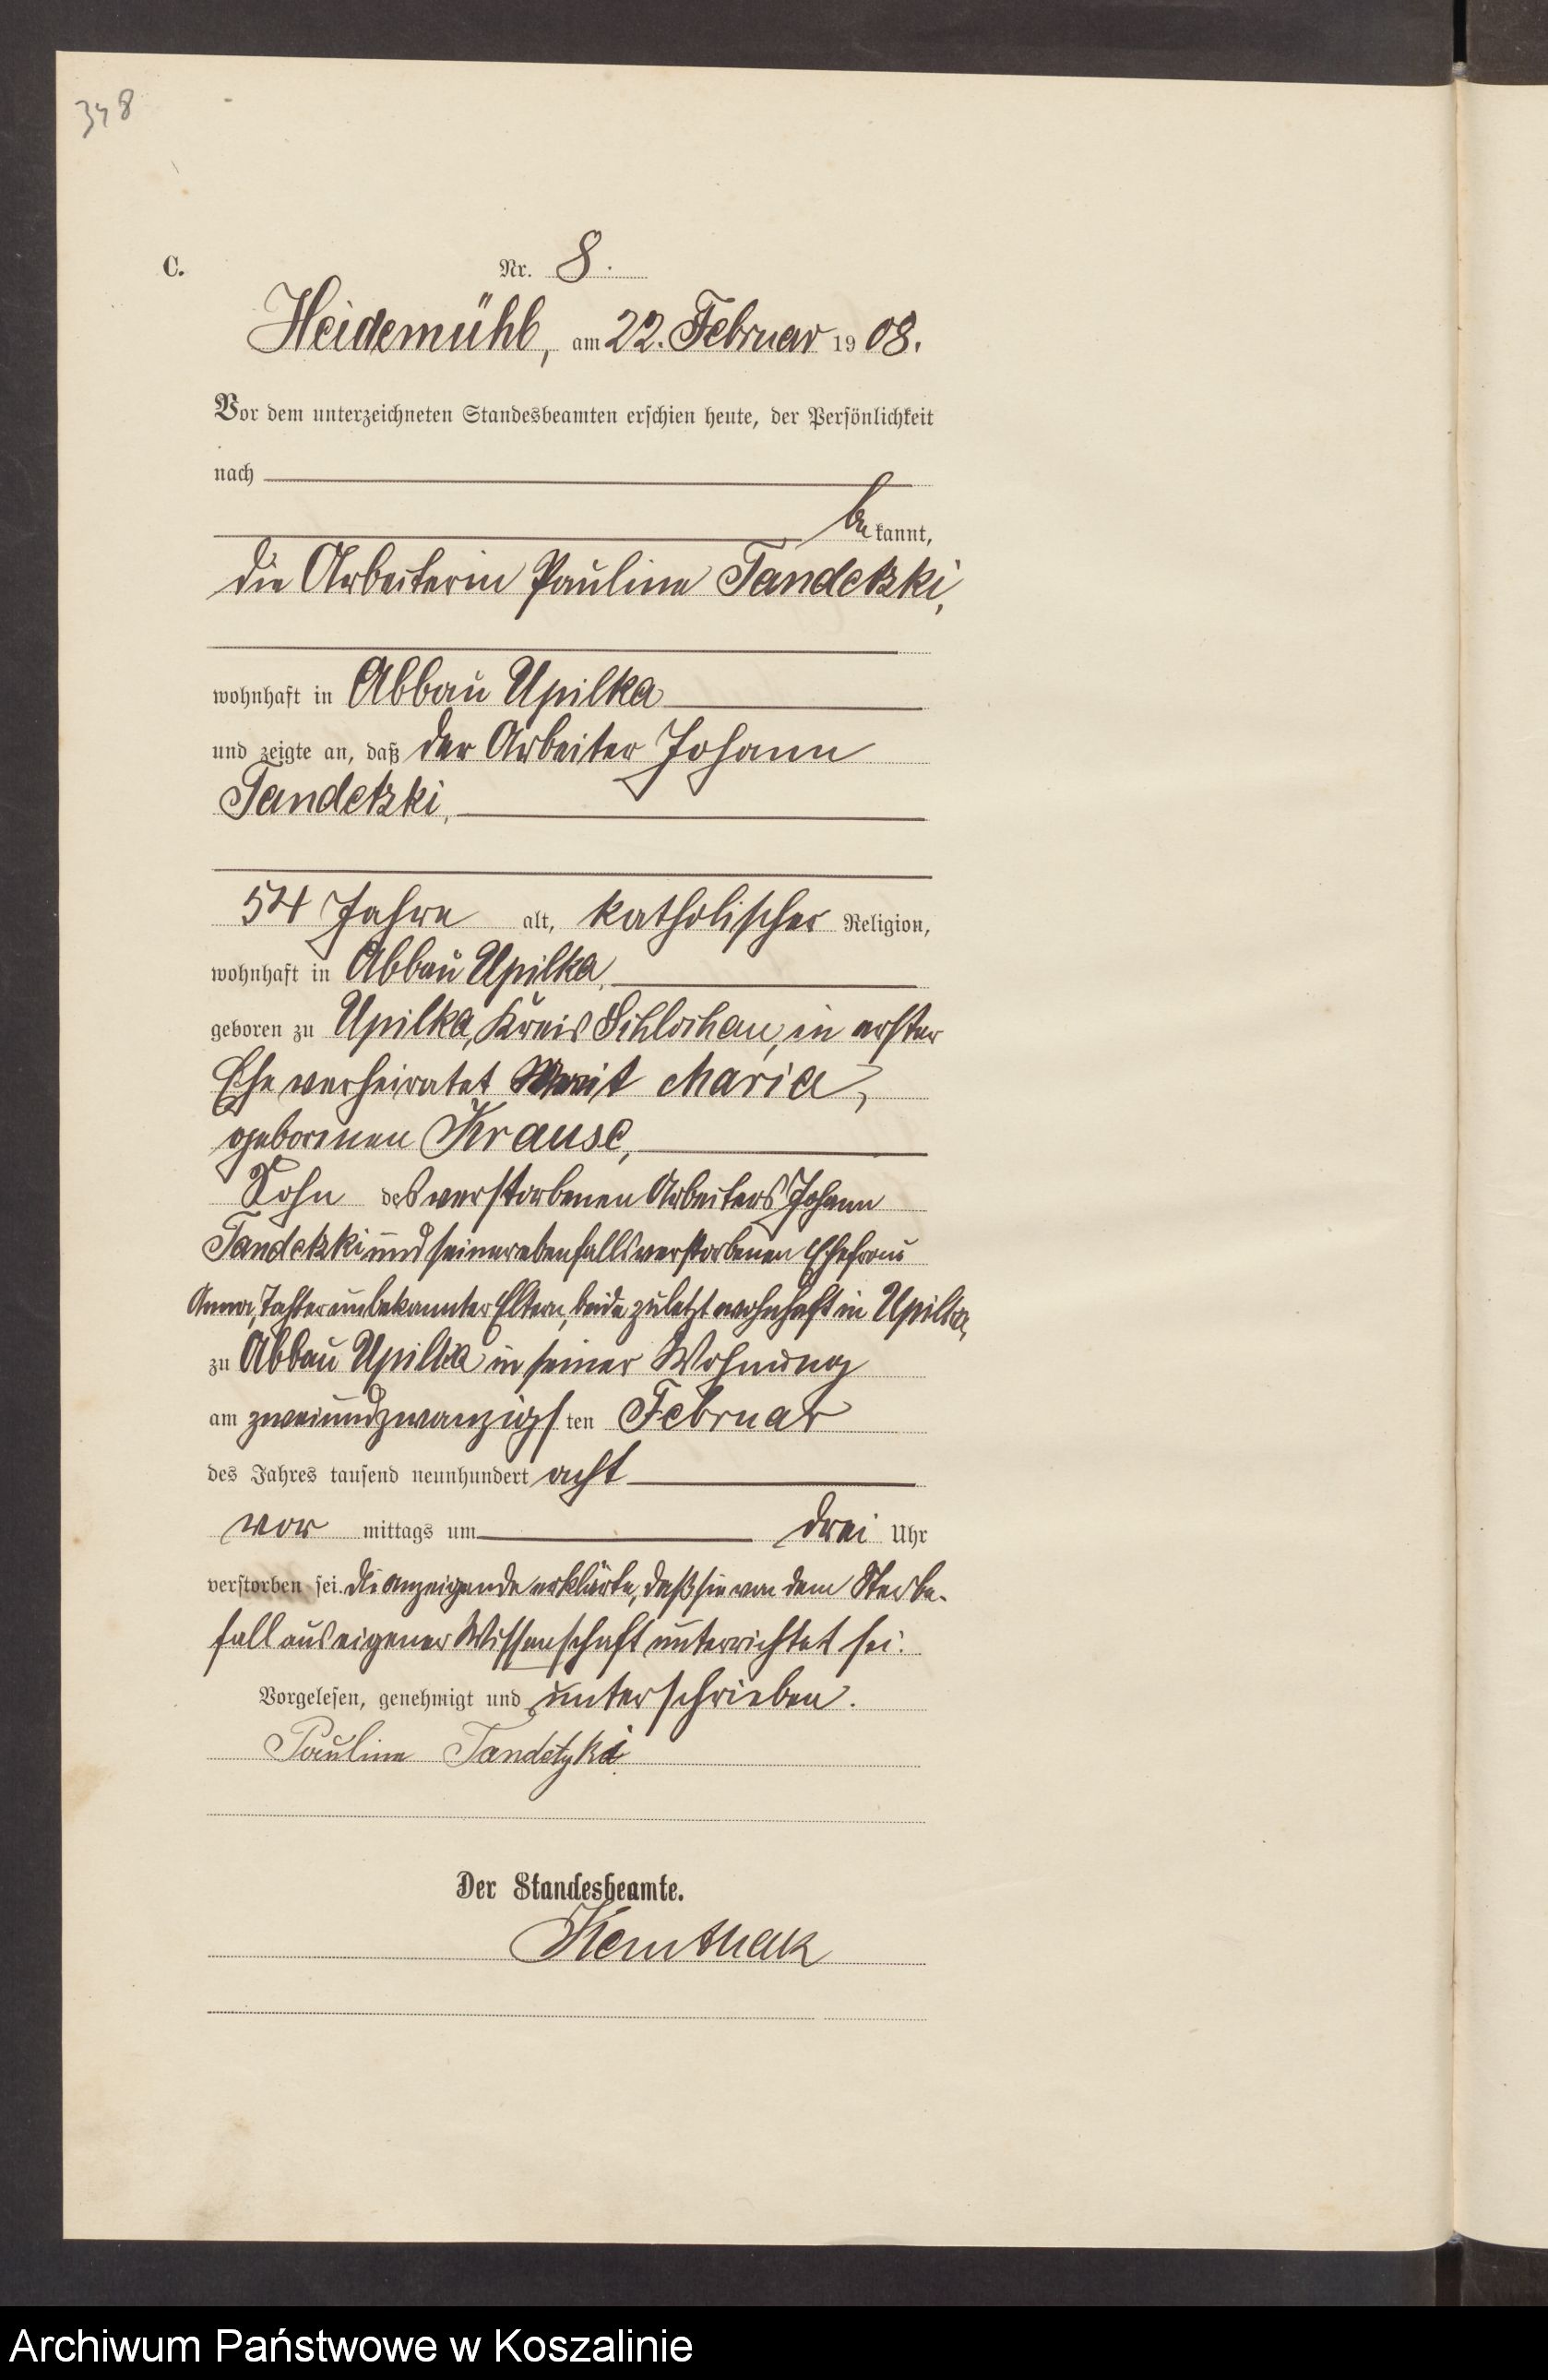 348
C.
Nr. 8.
Heidemühl, am 22. Februar 1908.
Vor dem unterzeichneten Standesbeamten erschien heute, der Persönlichkeit
nach
be kannt,
die Arbeiterin Pauline Tandetzki,
wohnhaft in Abbau Upilka
und zeigte an, daß der Arbeiter Johann
Tandetzki,
54 Jahre alt, katholischer Religion,
wohnhaft in Abbau Upilka,
geboren zu Upilka, Kreis Schlochau, in erster
Ehe verheiratet mit Maria,
geborenen Krause,
Sohn des verstorbenen Arbeiters Johann
Tandetzki und seiner ebenfalls verstorbenen Ehefrau
Anna, Tochter unbekannter Eltern, beide zuletzt wohnhaft in Upilka,
zu Abbau Upilka in seiner Wohnung
am zweiundzwanzigsten Februar
des Jahres tausend neunhundert acht
vor mittags um drei Uhr
verstorben sei. Die Anzeigende erklärte, daß sie von dem Sterbe-
fall aus eigener Wissenschaft unterrichtet sei.
Vorgelesen, genehmigt und unterschrieben.
Pauline Tandetzki
Der Standesbeamte.
Archiwum Państwowe w Koszalinie